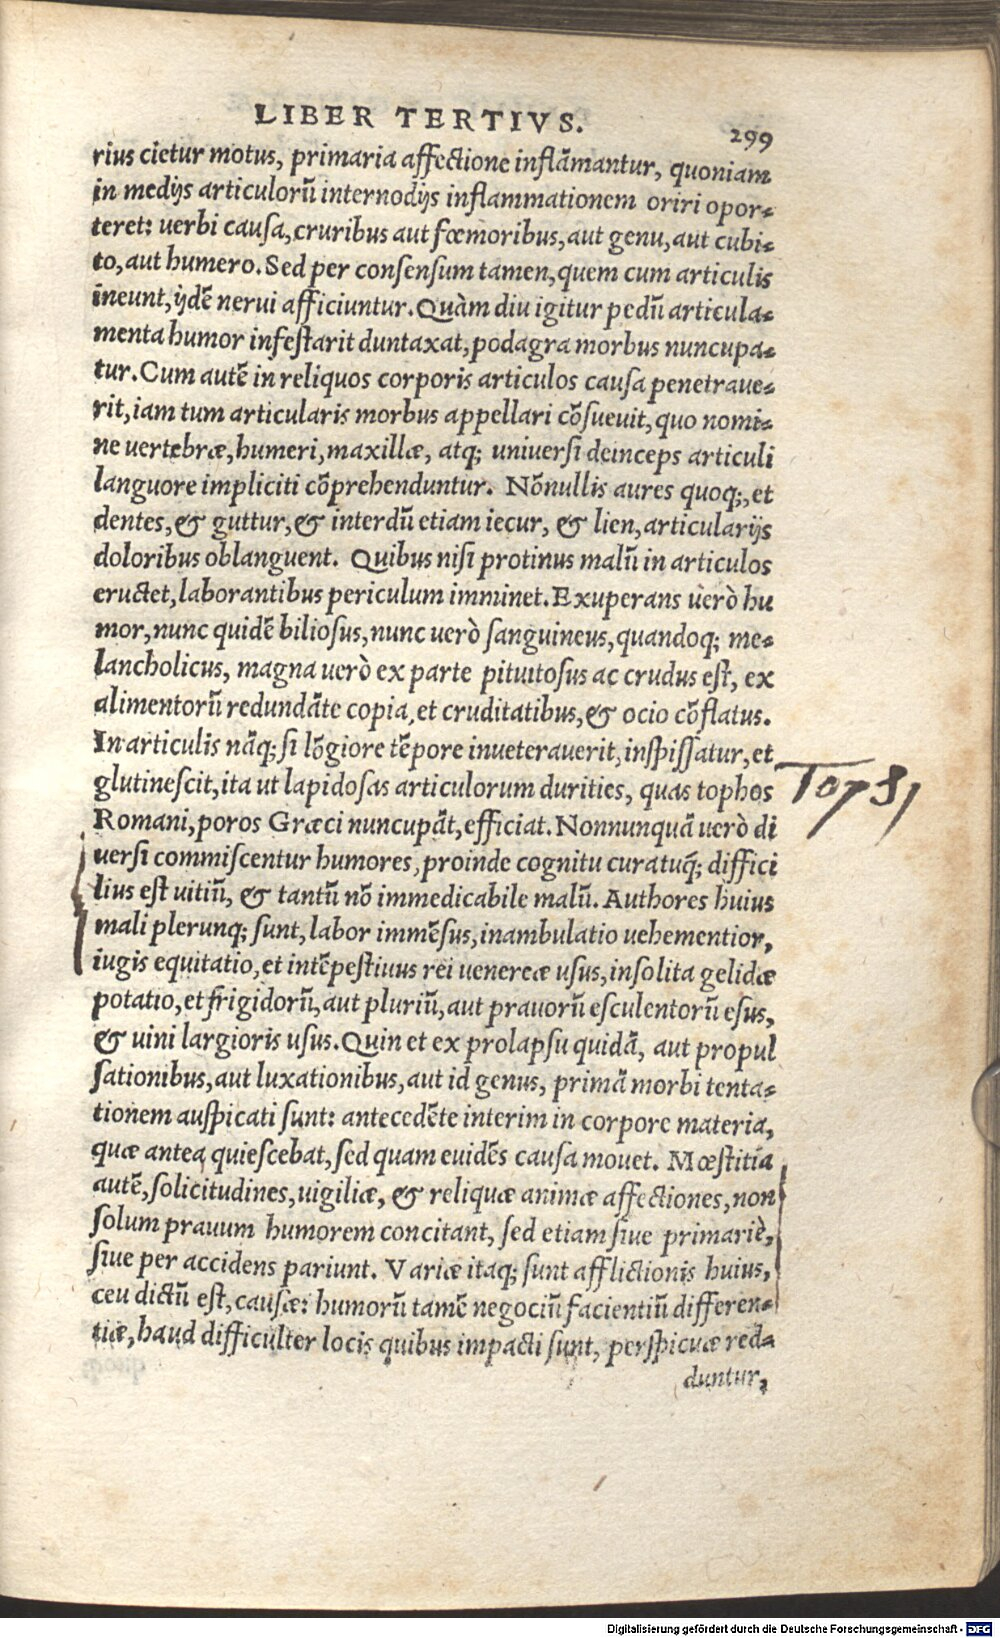 LIBER TERTIVS.
299
rius cietur motus, primaria affectione inflãmantur, quoniam
in medijs articulorũ internodijs inflammationem oriri opor-
teret: uerbi causa, cruribus aut fœmoribus, aut genu, aut cubi-
to, aut humero. Sed per consensum tamen, quem cum articulis
ineunt, ijdẽ nerui afficiuntur. Quàm diu igitur pedũ articula-
menta humor infestarit duntaxat, podagra morbus nuncupa-
tur. Cum autẽ in reliquos corporis articulos causa penetraue-
rit, iam tum articularis morbus appellari cõsueuit, quo nomi-
ne uertebræ, humeri, maxillæ, atq; uniuersi deinceps articuli
languore impliciti cõprehenduntur. Nõnullis aures quoq;, et
dentes, & guttur, & interdũ etiam iecur, & lien, articularijs
doloribus oblanguent. Quibus nisi protinus malũ in articulos
eructet, laborantibus periculum imminet. Exuperans uerò hu
mor, nunc quidẽ biliosus, nunc uerò sanguineus, quandoq; me-
lancholicus, magna uerò ex parte pituitosus ac crudus est, ex
alimentorũ redundãte copia, et cruditatibus, & ocio cõflatus.
In articulis nãq; si lõgiore tẽpore inueterauerit, inspissatur, et
glutinescit, ita ut lapidosas articulorum durities, quas tophos
Romani, poros Græci nuncupãt, efficiat. Nonnunquã uerò di
uersi commiscentur humores, proinde cognitu curatuq̃; diffici
lius est uitiũ, & tantũ nõ immedicabile malũ. Authores huius
mali plerunq; sunt, labor immẽsus, inambulatio uehementior,
iugis equitatio, et intẽpestiuus rei venereæ usus, insolita gelidæ
potatio, et frigidorũ, aut pluriũ, aut prauorũ esculentorũ esus,
& uini largioris usus. Quin et ex prolapsu quidã, aut propul
sationibus, aut luxationibus, aut id genus, primã morbi tenta-
tionem auspicati sunt: antecedẽte interim in corpore materia,
quæ antea quiescebat, sed quam euidẽs causa mouet. Mœstitia
autẽ, solicitudines, uigiliæ, & reliquæ animæ affectiones, non
solum prauum humorem concitant, sed etiam siue primariè,
siue per accidens pariunt. Variæ itaq; sunt afflictionis huius,
ceu dictũ est, causæ: humorũ tamẽ negociũ facientiũ differen-
tiæ, haud difficulter locis quibus impacti sunt, perspicuæ red-
duntur,
Digitalisierung gefördert durch die Deutsche Forschungsgemeinschaft - DFG